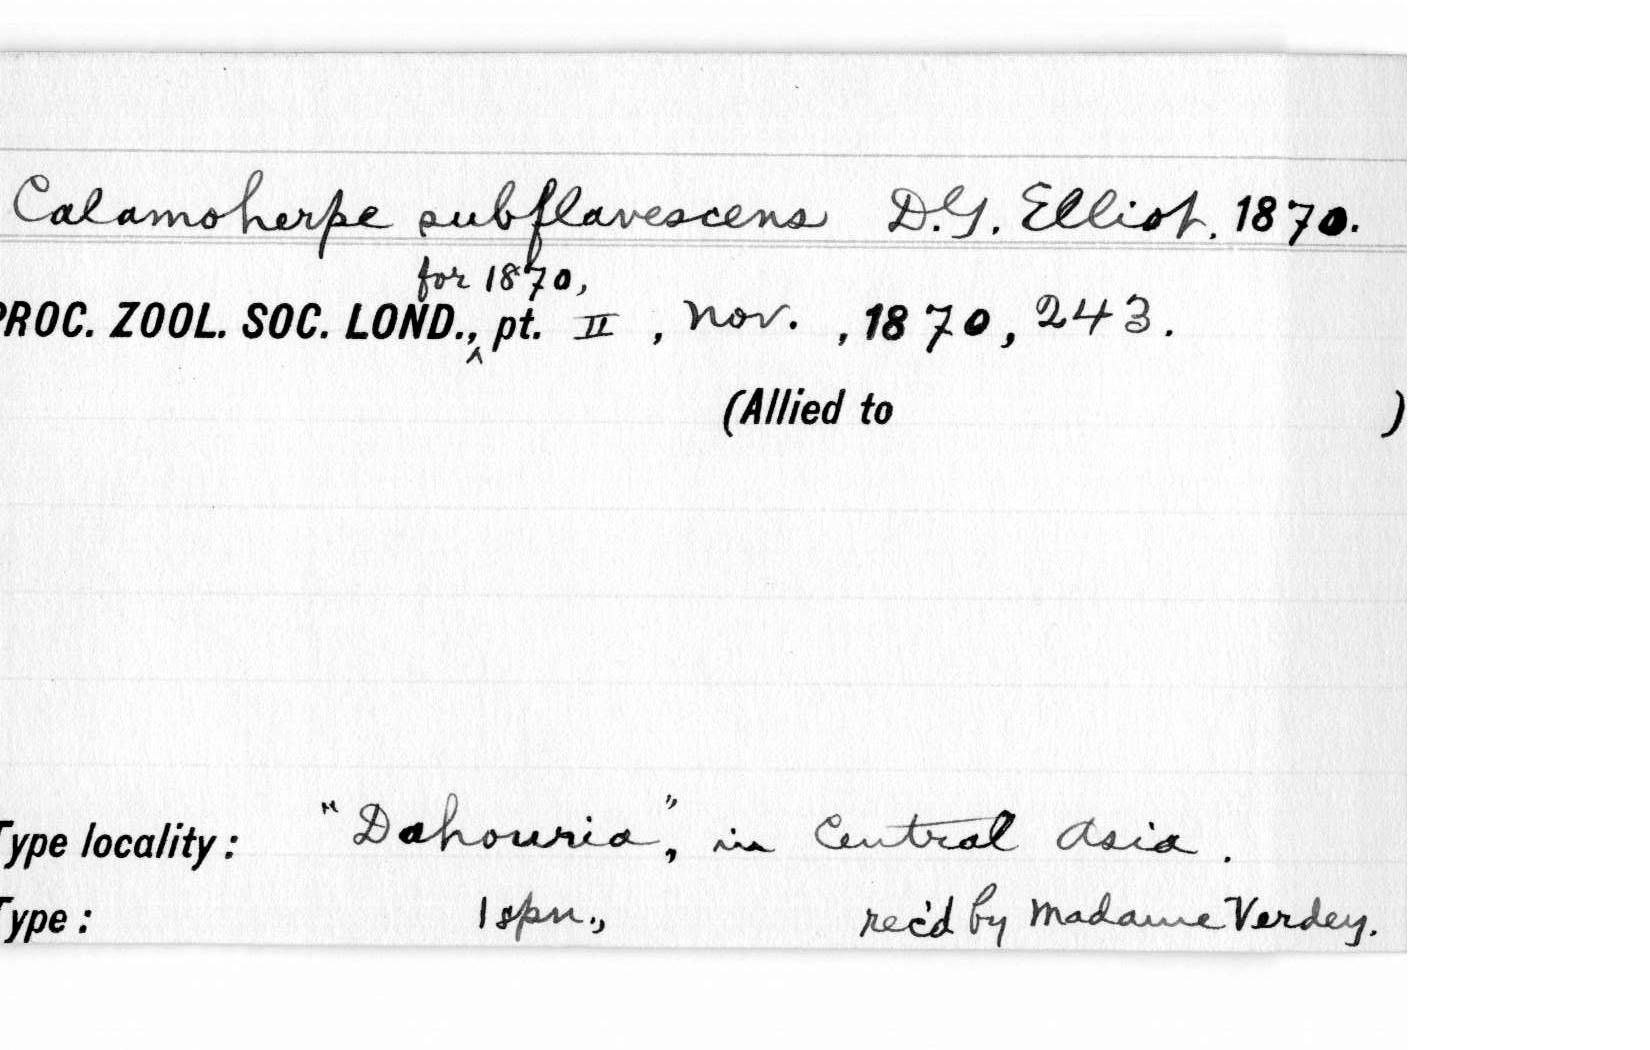 Calamoherpe subflavescens D.G. Elliot. 1870.
for 1870,
PROC. ZOOL. SOC. LOND.,^ pt. II, Nov., 1870, 243.
(Allied to )
Type locality: "Dahouria", in Central Asia.
Type: 1 spn., rec'd by Madame Verdey.